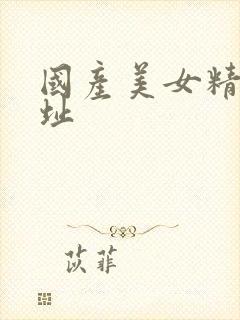 國產美女精
址
苡菲